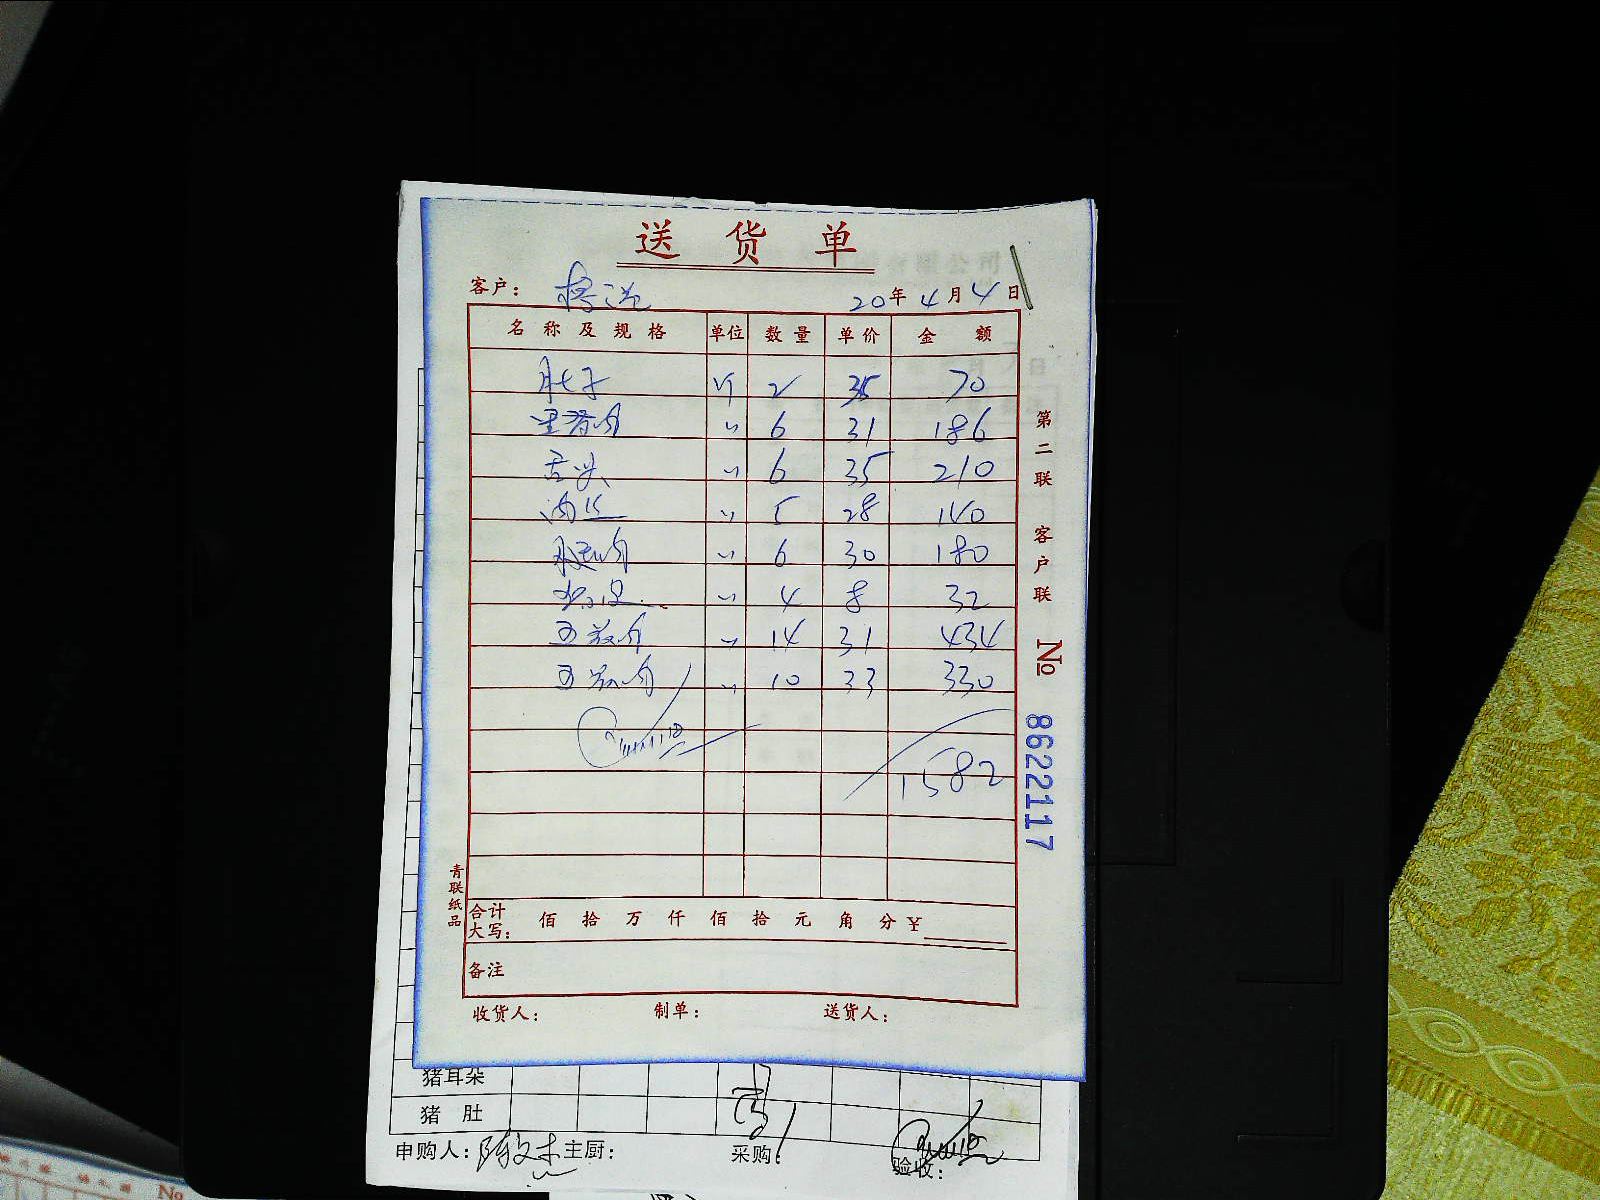 送货单
客户： 20年4月4日
名称及规格 单位 数量 单价 金额
肚子 斤 2 35 70
里脊肉 〃 6 31 186
舌头 〃 6 35 210
肉丝 〃 5 28 140
腿肉 〃 6 30 180
〃 4 8 32
五花肉 〃 14 31 434
五花肉 〃 10 33 330
1582
合计大写： 佰 拾 万 仟 佰 拾 元 角 分 ¥
备注
收货人： 制单： 送货人：
第二联 客户联
No 8622117
青联纸品
猪耳朵
猪肚
申购人： 主厨： 采购： 验收：